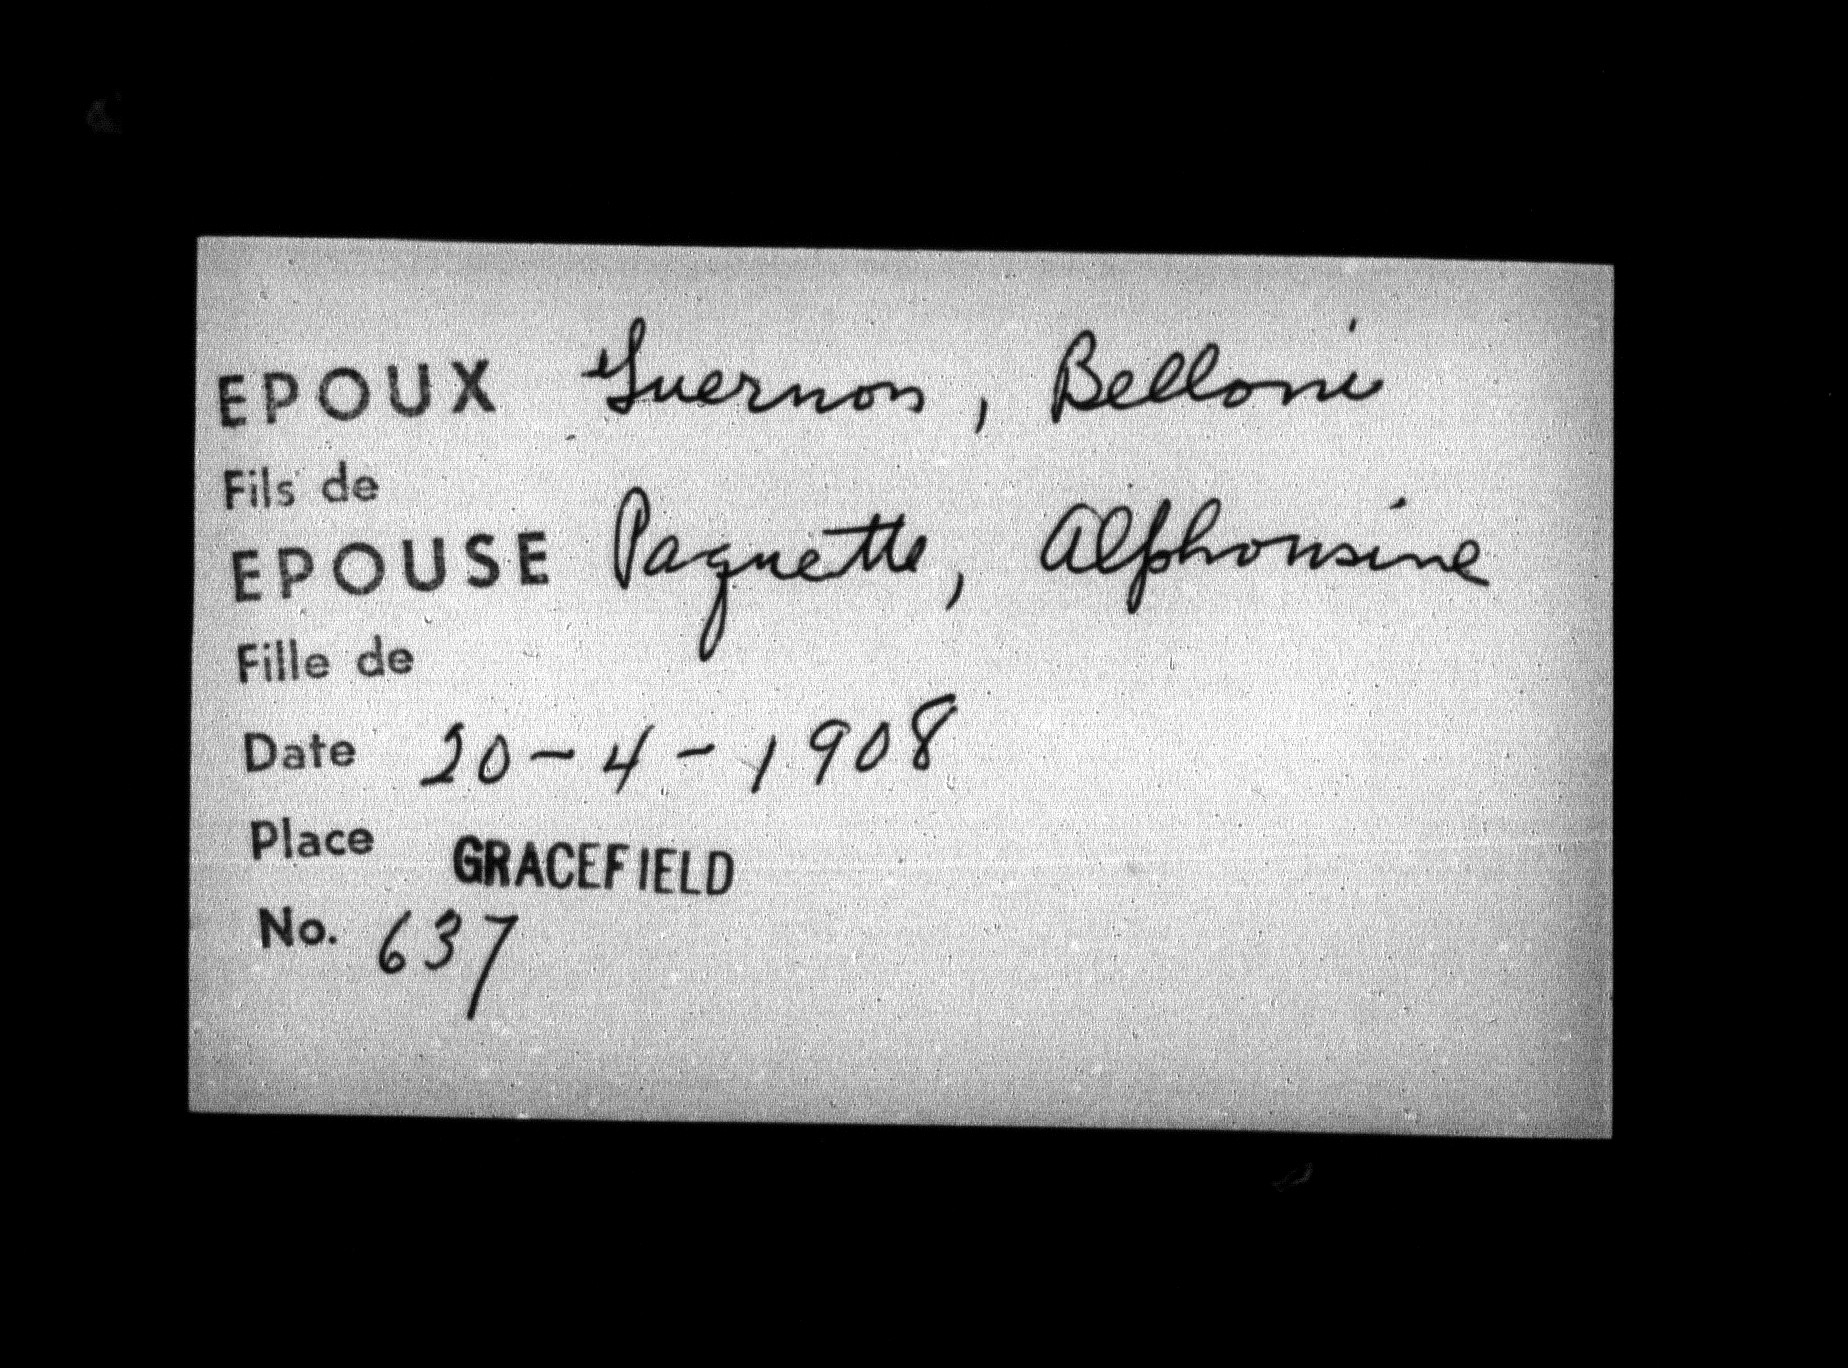 EPOUX Guernon, Belloni
Fils de
EPOUSE Paquette, Alphonsine
Fille de
Date 20-4-1908
Place GRACEFIELD
No. 637